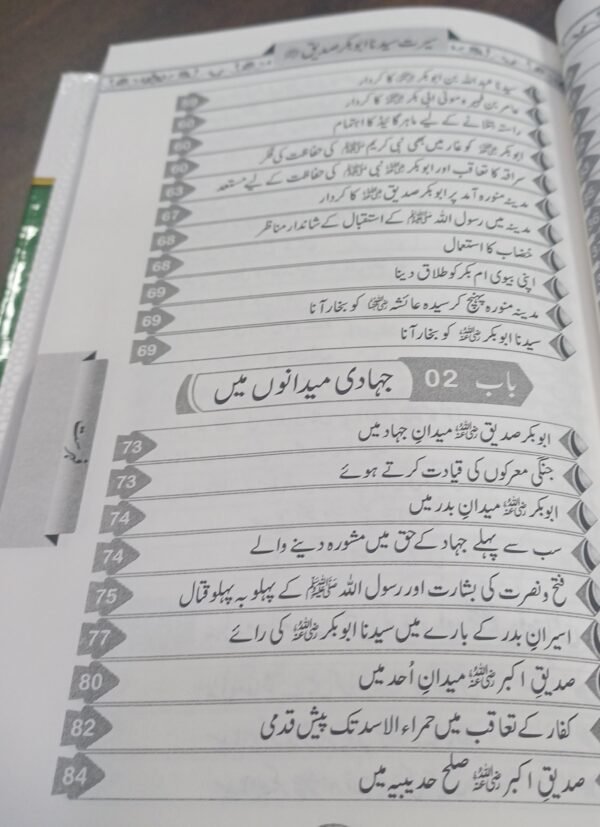 سیرت سیدنا ابوبکر صدیق رضی اللہ عنہ
سیدنا عبداللہ بن ابوبکر رضی اللہ عنہ کا کردار
عامر بن فہیرہ مولیٰ ابی بکر رضی اللہ عنہ کا کردار 59
راستہ بتلانے کے لیے ماہر گائیڈ کا اہتمام
ابوبکر رضی اللہ عنہ کو غار میں بھی نبی کریم ﷺ کی حفاظت کی فکر 60
سراقہ کا تعاقب اور ابوبکر رضی اللہ عنہ نبی ﷺ کی حفاظت کے لیے مستعد 60
مدینہ منورہ آمد پر ابوبکر صدیق رضی اللہ عنہ کا کردار 63
مدینہ میں رسول اللہ ﷺ کے استقبال کے شاندار مناظر 67
خضاب کا استعمال 68
اپنی بیوی ام بکر کو طلاق دینا 68
مدینہ منورہ پہنچ کر سیدہ عائشہ رضی اللہ عنہا کو بخار آنا 69
سیدنا ابوبکر رضی اللہ عنہ کو بخار آنا 69
69
باب 02 جہادی میدانوں میں
ابوبکر صدیق رضی اللہ عنہ میدانِ جہاد میں 73
جنگی معرکوں کی قیادت کرتے ہوئے 73
ابوبکر رضی اللہ عنہ میدانِ بدر میں 74
سب سے پہلے جہاد کے حق میں مشورہ دینے والے 74
فتح و نصرت کی بشارت اور رسول اللہ ﷺ کے پہلو بہ پہلو قتال 75
اسیرانِ بدر کے بارے میں سیدنا ابوبکر رضی اللہ عنہ کی رائے 77
صدیقِ اکبر رضی اللہ عنہ میدانِ اُحد میں 80
کفار کے تعاقب میں حمراء الاسد تک پیش قدمی 82
صدیقِ اکبر رضی اللہ عنہ صلح حدیبیہ میں 84
فہرست